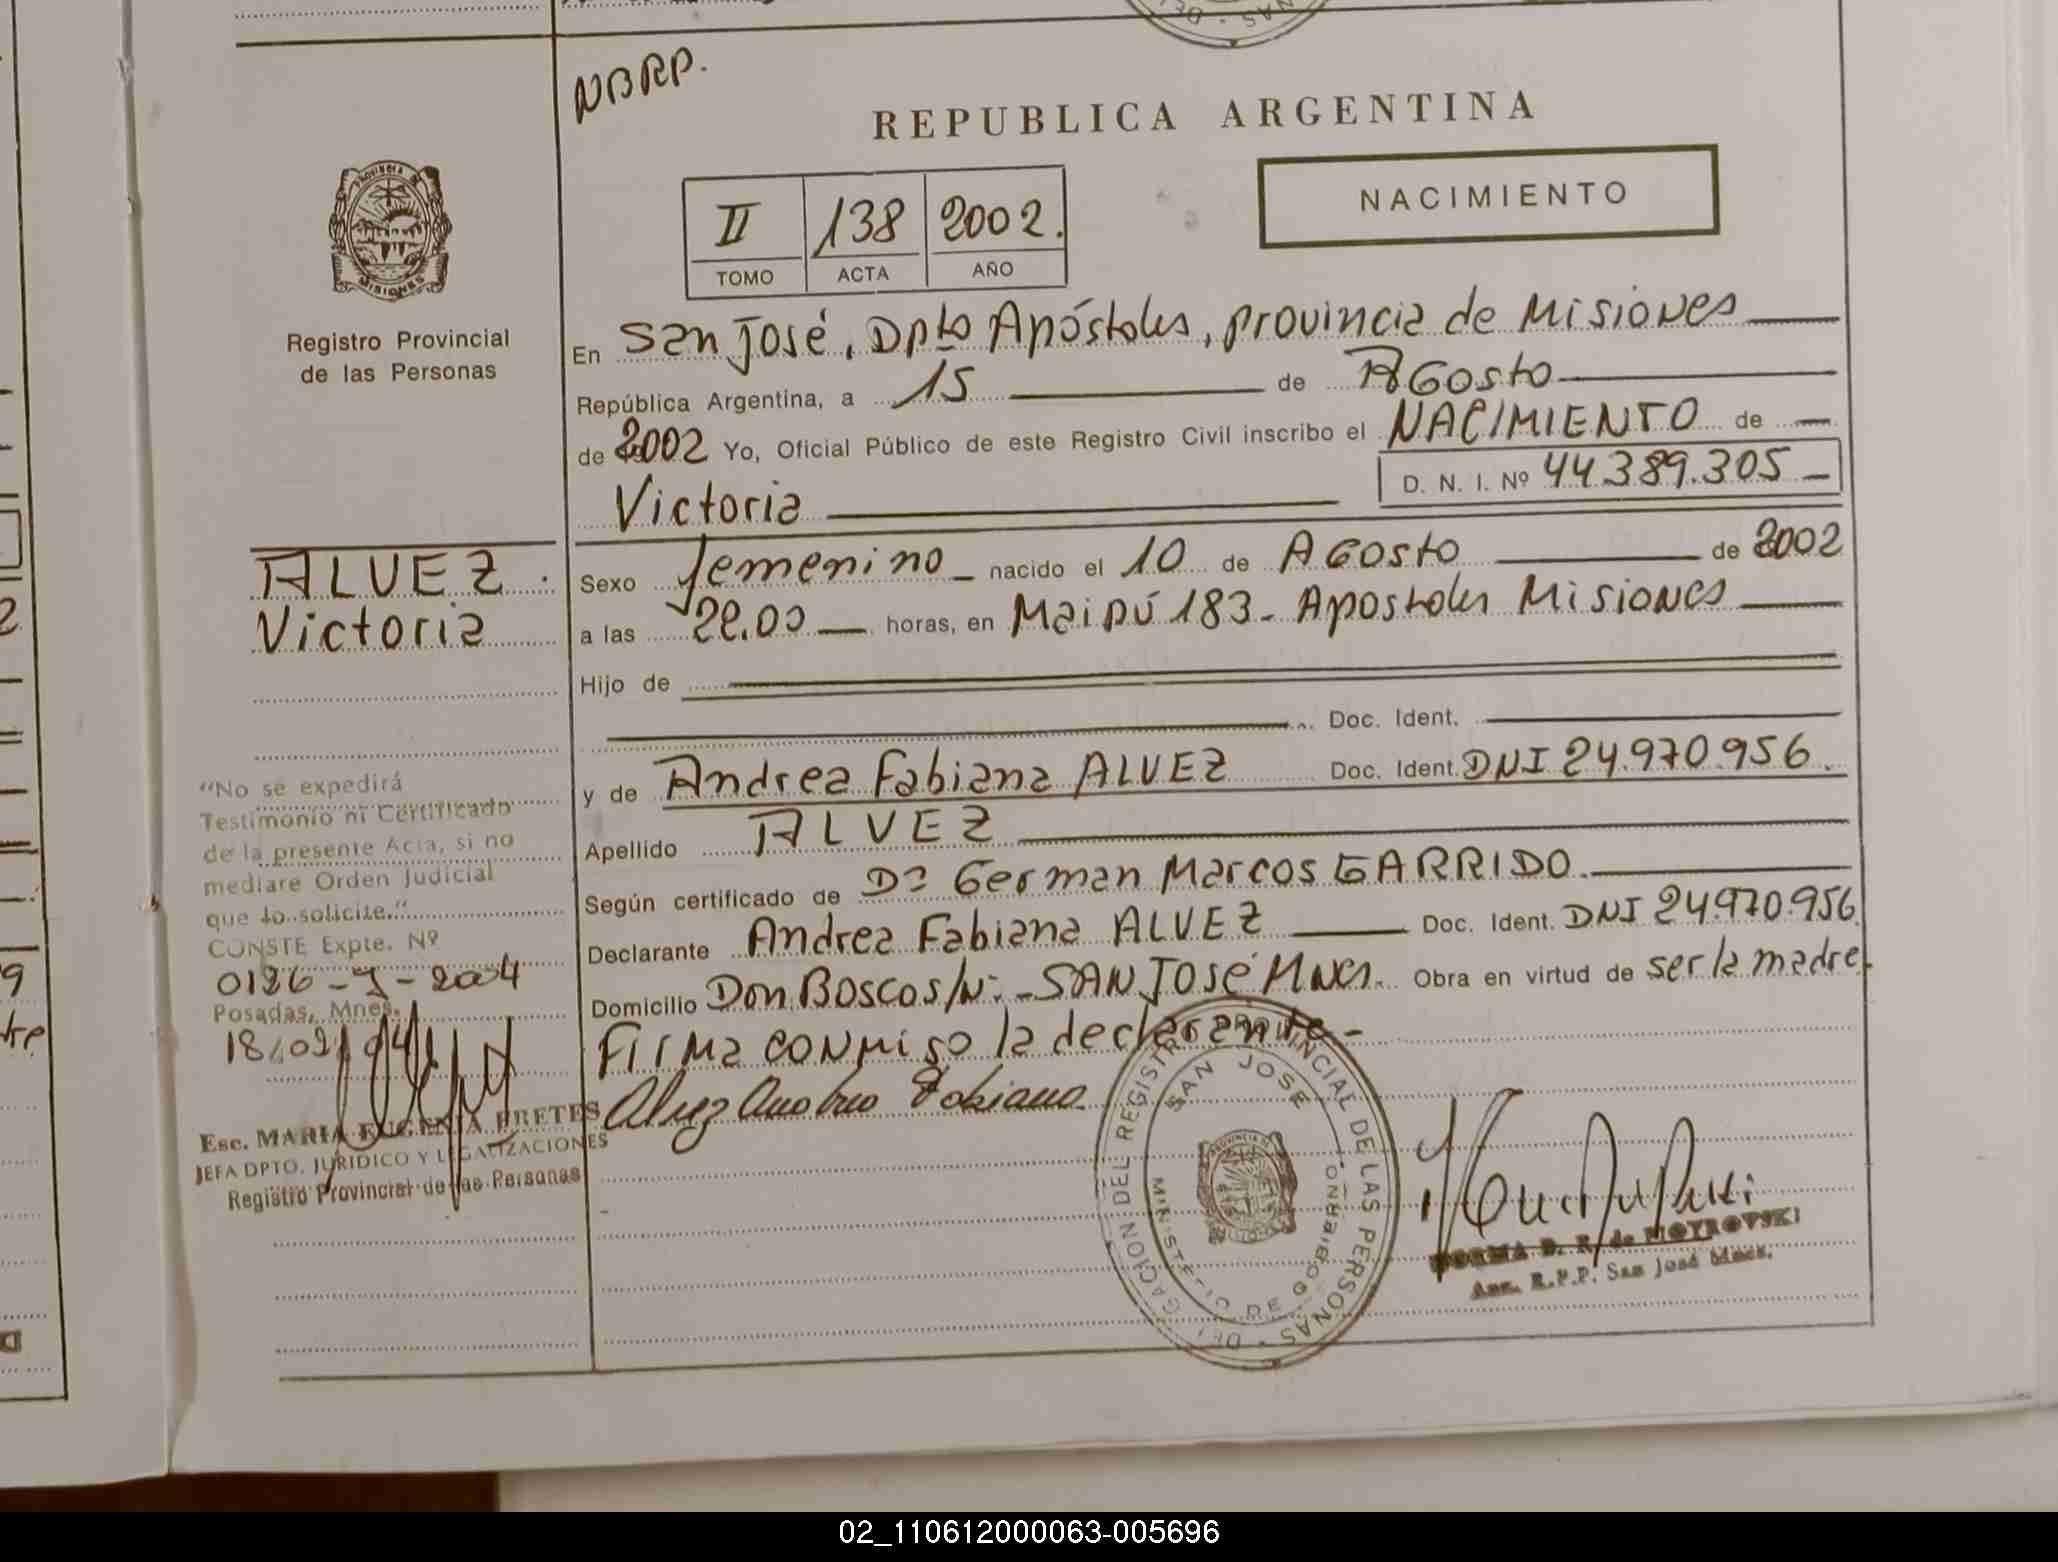 NBRP.
REPUBLICA ARGENTINA
NACIMIENTO
II 138 2002.
TOMO ACTA AÑO
PROVINCIA DE
MISIONES
Registro Provincial
de las Personas
En San José, Dpto Apóstoles, provincia de Misiones
República Argentina, a 15 de Agosto
de 2002 Yo, Oficial Público de este Registro Civil inscribo el NACIMIENTO de
D. N. I. Nº 44.389.305
Victoria
ALVEZ
Victoria
Sexo femenino nacido el 10 de Agosto de 2002
a las 22.00 horas, en Maipú 183 - Apostoles Misiones
Hijo de
Doc. Ident.
y de Andrea Fabiana ALVEZ Doc. Ident. DNI 24.970.956.
Apellido ALVEZ
Según certificado de Dº German Marcos GARRIDO.
Declarante Andrea Fabiana ALVEZ Doc. Ident. DNI 24.970.956
Domicilio Don Bosco s/Nº - SAN JOSÉ Mnes. Obra en virtud de ser la madre
Firma conmigo la declarante -
Alvez Andrea Fabiana
"No se expedirá
Testimonio ni Certificado
de la presente Acta, si no
mediare Orden Judicial
que lo solicite."
CONSTE Expte. Nº
Posadas, Mnes.
18/02/04
Esc. MARIA EUGENIA BRETES
JEFA DPTO. JURIDICO Y LEGALIZACIONES
Registro Provincial de las Personas
DELEGACION DEL REGISTRO PROVINCIAL DE LAS PERSONAS
SAN JOSE
MINISTERIO DE GOBIERNO
NORMA D. R. de PIOTROVSKI
R.P.P. San José Mnes.
02_110612000063-005696